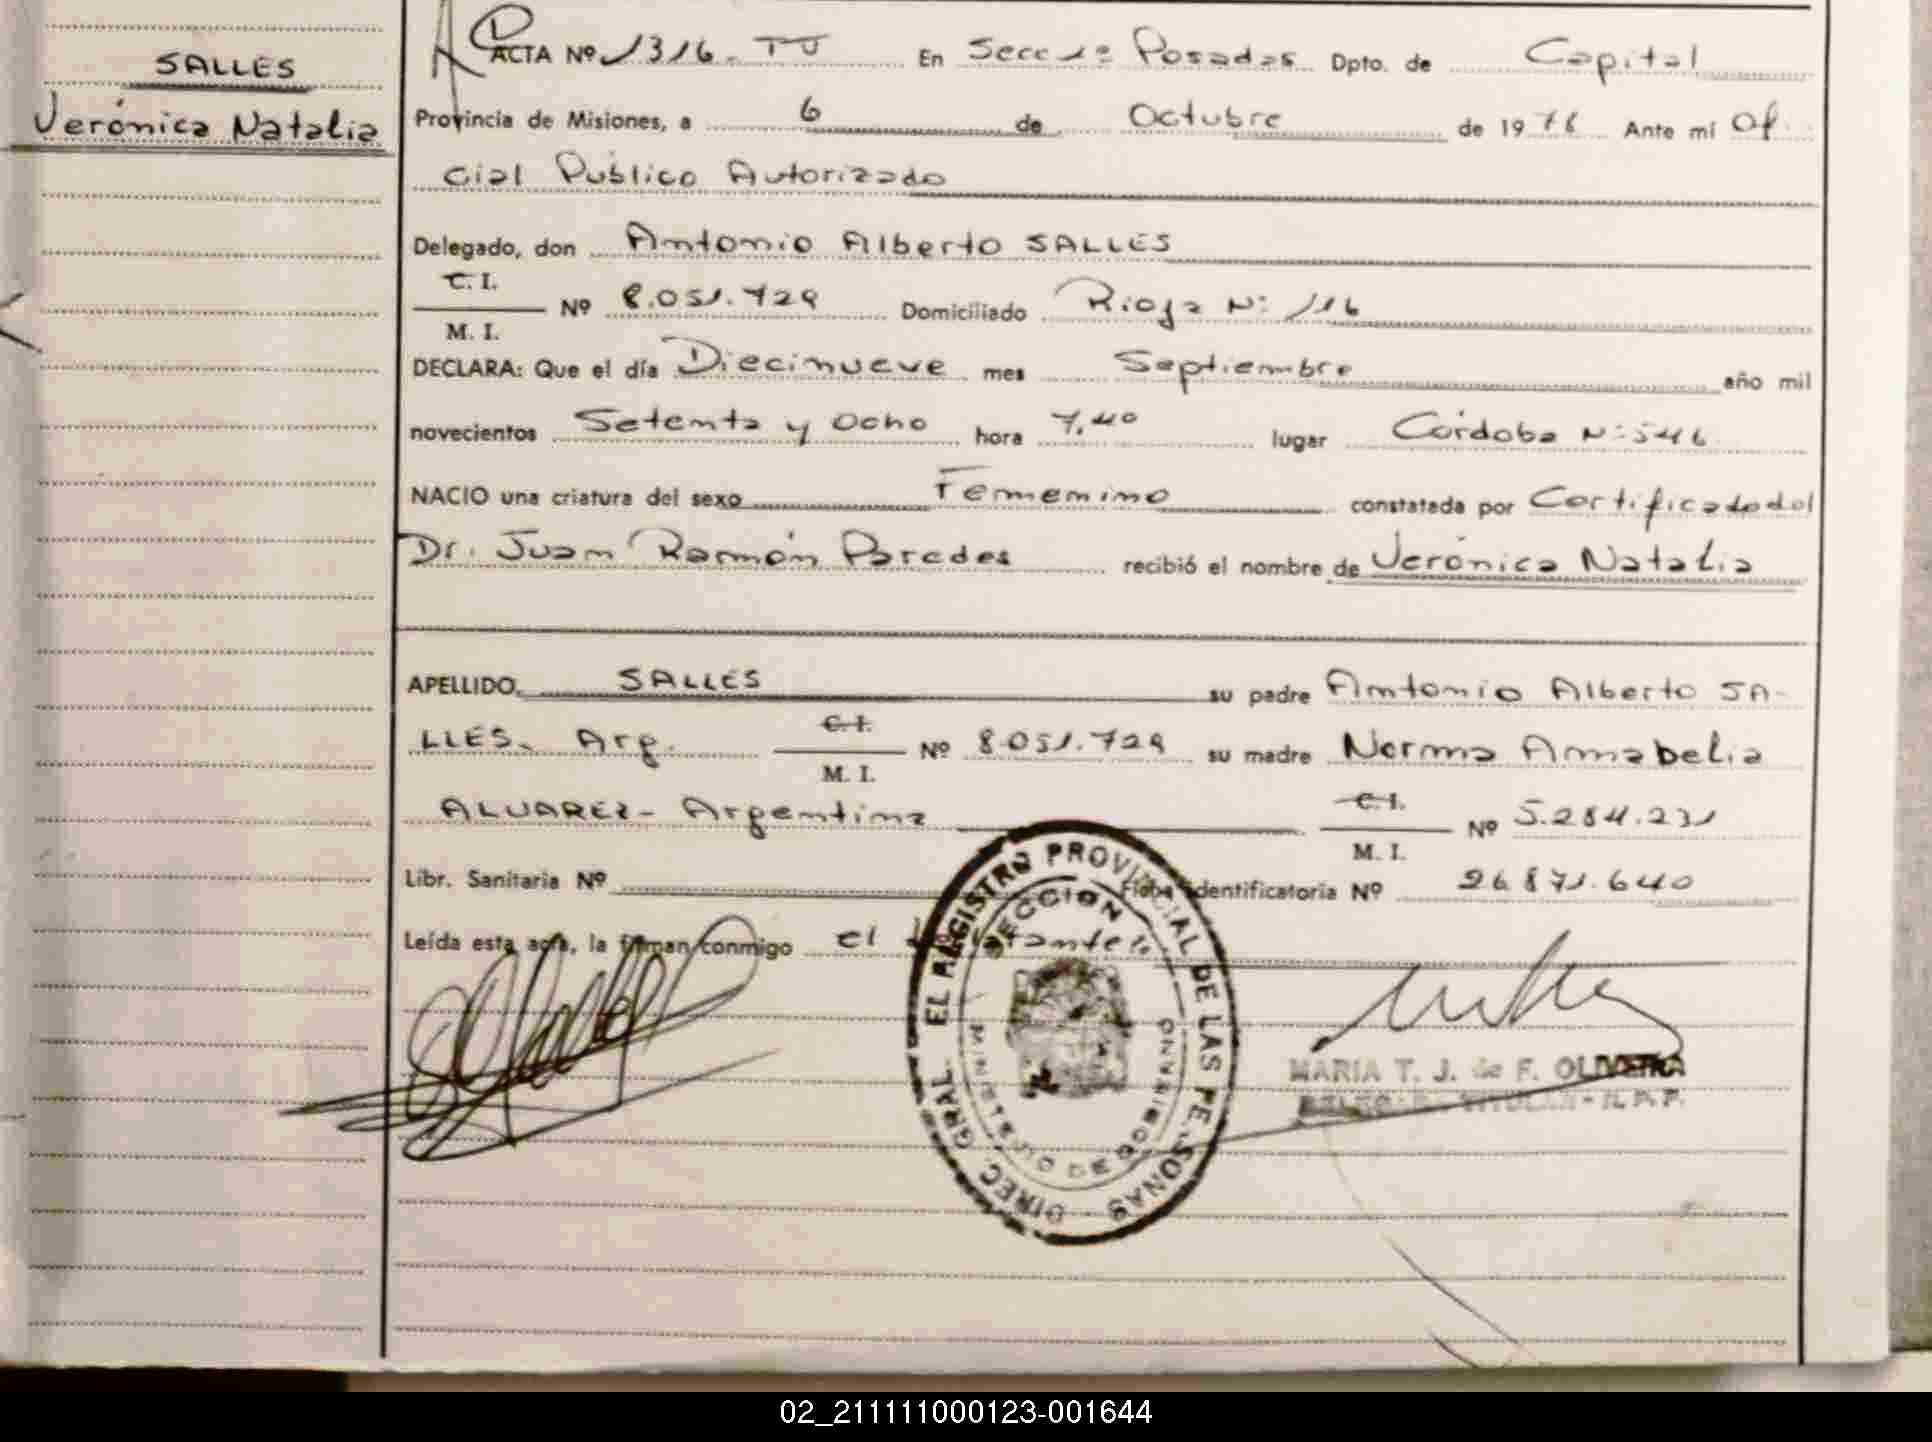 SALLES
Verónica Natalia
ACTA Nº 1316. TU En Secc 1ª Posadas Dpto. de Capital
Provincia de Misiones, a 6 de Octubre de 1978 Ante mí Ofi
cial Público Autorizado
Delegado, don Antonio Alberto SALLES
C. I.
M. I. Nº 8.051.729 Domiciliado Rioja Nº 116
DECLARA: Que el día Diecinueve mes Septiembre año mil
novecientos Setenta y Ocho hora 7,40 lugar Córdoba Nº 546
NACIO una criatura del sexo Femenino constatada por Certificado del
Dr. Juan Ramón Paredes recibió el nombre de Verónica Natalia
APELLIDO SALLES su padre Antonio Alberto SA-
LLES. Arg. C. I. M. I. Nº 8.051.729 su madre Norma Annabelia
ALVAREZ- Argentina C. I. M. I. Nº 5.284.231
Libr. Sanitaria Nº Ficha Identificatoria Nº 26.871.640
Leída esta acta, la firman conmigo el
DIREC. GRAL. EL REGISTRO PROVINCIAL DE LAS PERSONAS
DIRECCION
MINISTERIO DE GOBIERNO
MARIA T. J. de F. OLIVEIRA
TITULAR - R. P. P.
02_211111000123-001644